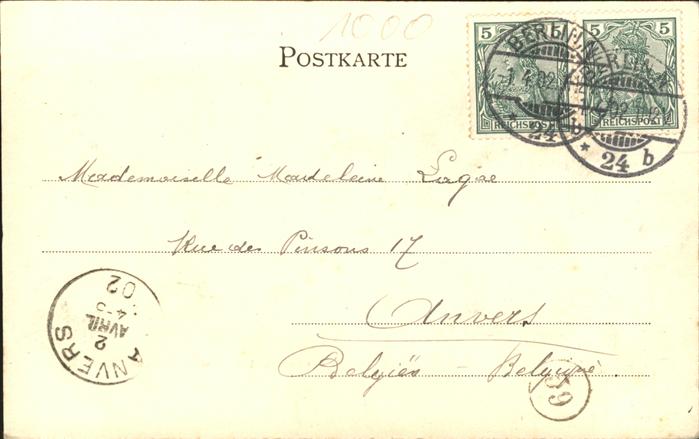 1000
POSTKARTE
5 5 5 5
REICHSPOST REICHSPOST
BERLIN.N.
-1.4.02
* 24 b
* 24 b
Mademoiselle Madeleine Lagae
Rue des Pinsons 17
Anvers
Belgiën - Belgique.
ANVERS
2
AVRIL
4-5
02
59